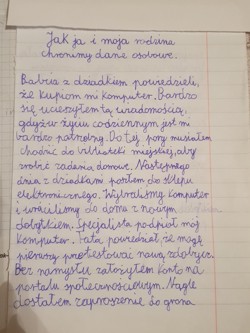 Jak ja i moja rodzina
chronimy dane osobowe.
Babcia z dziadkiem powiedzieli,
że kupią mi komputer. Bardzo
się ucieszyłem tą wiadomością,
gdyż w życiu codziennym jest mi
bardzo potrzebny. Do tej pory musiałem
chodzić do biblioteki miejskiej, aby
zrobić zadania domowe. Następnego
dnia z dziadkami poszłem do sklepu
elektronicznego. Wybraliśmy komputer
i wróciliśmy do domu z nowym
dobytkiem. Specjalista podpiął mój
komputer. Tata powiedział, że mogę
pierwszy przetestować nową zdobycz.
Bez namysłu założyłem konto na
portalu społecznościowym. Nagle
dostałem zaproszenie do grona